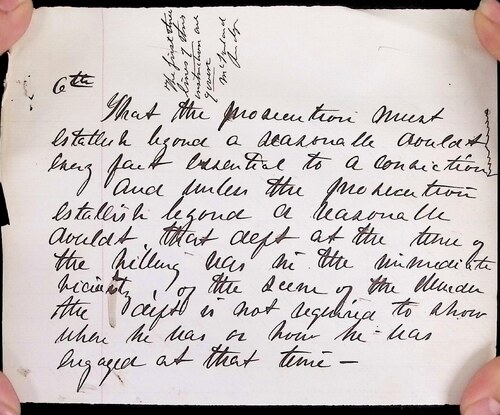 The first three
lines of this
instruction are
given
Judge
6th
That the prosecution must
establish beyond a reasonable doubt
every fact essential to a conviction
And unless the prosecution
establish beyond a reasonable
doubt that deft at the time of
the killing was in the immediate
vicinity of the scene of the Murder
the deft is not required to show
where he was or how he was
engaged at that time —